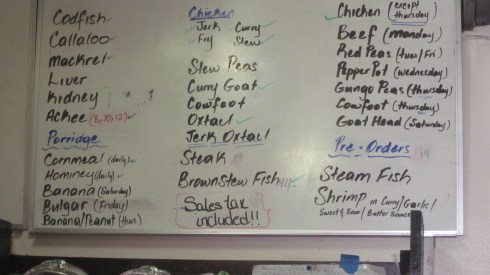 Codfish
Callaloo
Mackrel
Liver
Kidney
Ackee (8, 10, 12)
Porridge
Cornmeal (daily)
Hominey (daily)
Banana (Saturday)
Bulgar (Friday)
Banana/Peanut (thurs)
Chicken
Jerk Curry
Fry Stew
Stew Peas
Curry Goat
Cowfoot
Oxtail
Jerk Oxtail
Steak
Brownstew Fish
Sales tax
included!!
Chicken (except thursday)
Beef (monday)
Red Peas (tues/Fri)
Pepper Pot (wednesday)
Gungo Peas (thursday)
Cowfoot (thursday)
Goat Head (Saturday)
Pre-Orders
Steam Fish
Shrimp in Curry/Garlic/
Sweet & Sour/Butter Sauce